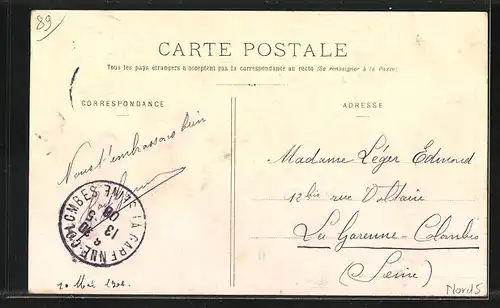 89
CARTE POSTALE
Tous les pays étrangers n'acceptent pas la correspondance au recto (Se renseigner à la Poste)
CORRESPONDANCE
ADRESSE
Nous t'embrassons bien
Madame Léger Edmond
12 bis rue Voltaire
La Garenne-Colombes
(Seine)
LA GARENNE-COLOMBES
SEINE
13
5
06
20 Mai
Nord 5